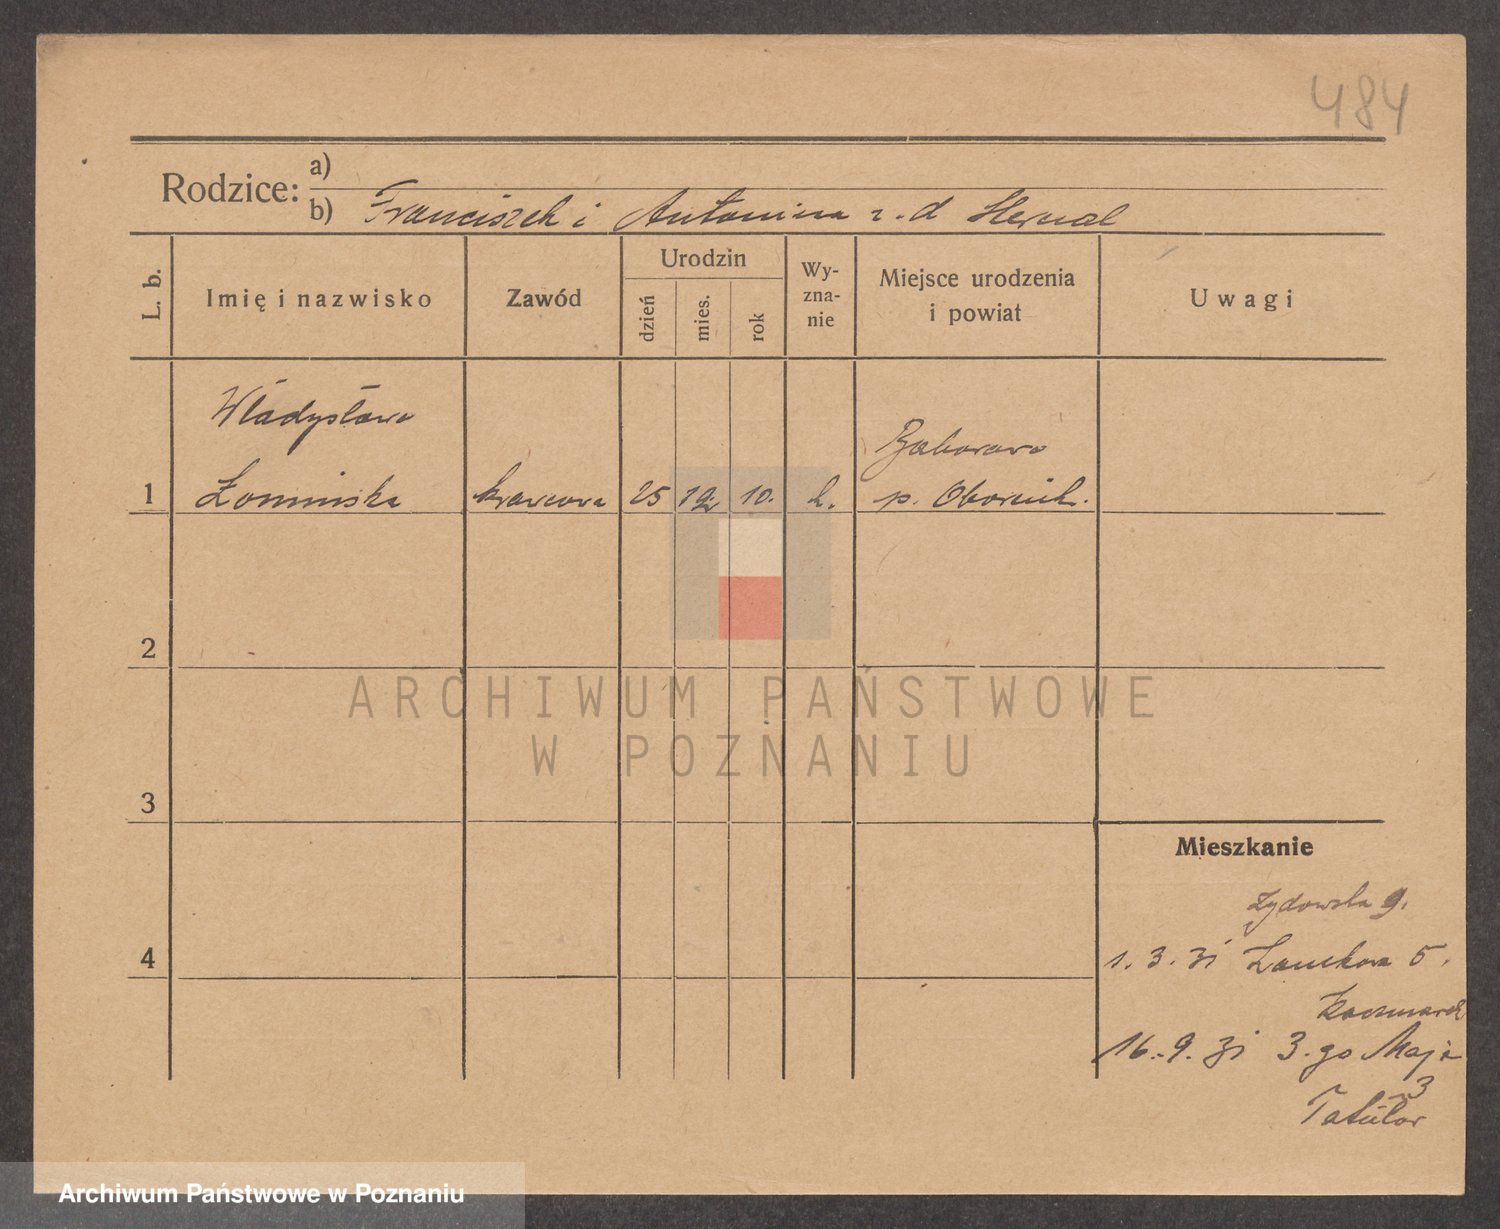 484
Rodzice:
a)
b) Franciszek i Antonina z. d
L. b.
Imię i nazwisko
Zawód
Urodzin
dzień
mies.
rok
Wy-
zna-
nie
Miejsce urodzenia
i powiat
Uwagi
Władysława
1 Łomińska krawcowa 25 12 10. k.
Baborowo
p. Obornik.
2
3
4
ARCHIWUM PAŃSTWOWE
W POZNANIU
Mieszkanie
Żydowska 9.
1. 3. 31 Zamkowa 5.
Kaczmarek
16. 9. 31 3-go Maja
3
Archiwum Państwowe w Poznaniu